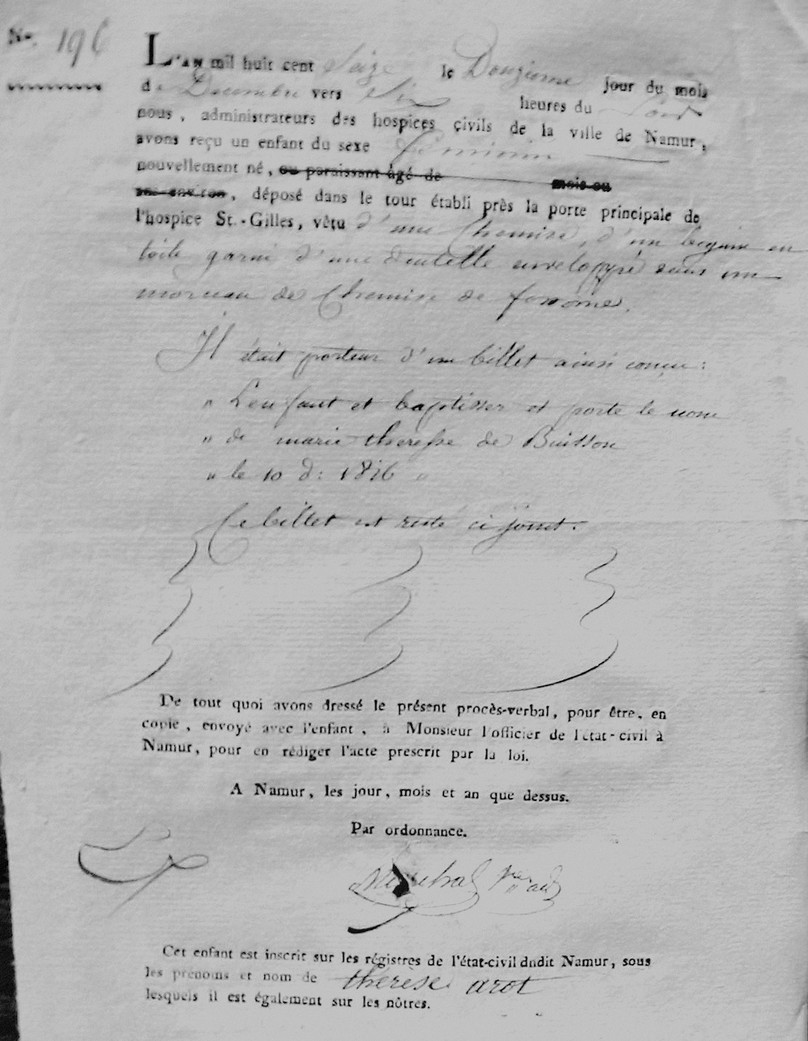 N.o 196
L'AN mil huit cent Seize le Douzieme jour du mois
de Decembre vers Six heures du Soir
nous, administrateurs des hospices civils de la ville de Namur,
avons reçu un enfant du sexe feminin
nouvellement né, ou paraissant âgé de mois ou
an environ, déposé dans le tour établi près la porte principale de
l'hospice St.-Gilles, vêtu d'une Chemise, d'un beguin en
toile garni d'une dentelle enveloppé dans un
morceau de Chemise de femme.
Il était porteur d'un billet ainsi conçu:
" L'enfant et baptisser et porte le nom
" de marie theresse de Buisson
" le 10 d: 1816 "
Ce billet est resté ci joint.
De tout quoi avons dressé le présent procès-verbal, pour être, en
copie, envoyé avec l'enfant, à Monsieur l'officier de l'état-civil à
Namur, pour en rédiger l'acte prescrit par la loi.
A Namur, les jour, mois et an que dessus.
Par ordonnance.
Cet enfant est inscrit sur les régistres de l'état-civil dudit Namur, sous
les prénoms et nom de therèse arot
lesquels il est également sur les nôtres.